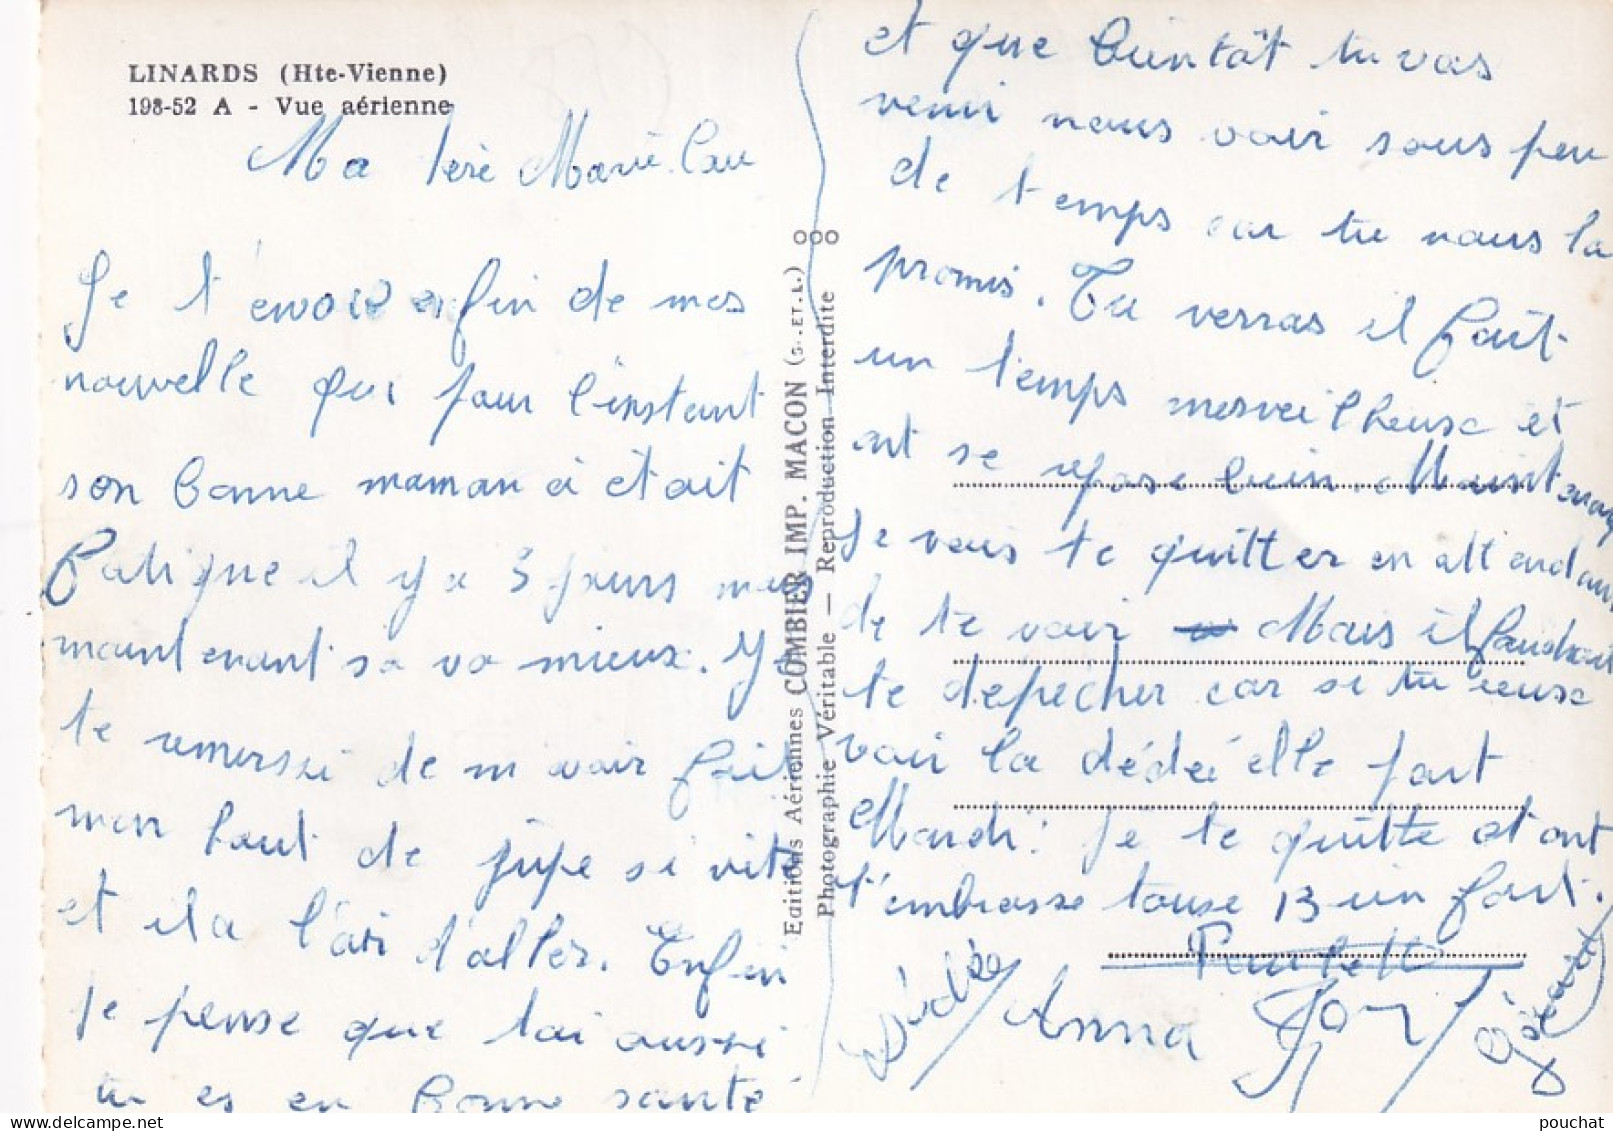 LINARDS (Hte-Vienne)
198-52 A - Vue aérienne
Ma Marie-Lau
Je t'envoie enfin de mes
nouvelle qui pour l'instant
son bonne maman à était
fatigue il y a 3 jours mais
maintenant sa va mieux. Je
te remersi de m'avoir fait
mon haut de jupe si vite
et il a l'air d'aller. Enfin
je pense que toi aussi
tu es en bonne santé
et que bientôt tu vas
venir nous voir sous peu
de temps car tu nous la
promis. Tu verras il fait
un temps merveilheuse et
ont se repose bien. Maintenant
je vous te quitter en attendant
de te voir Mais il faudrait
te dépécher car si tu veuse
voir la dédée elle part
Mardi. Je te quitte et ont
t'embrasse touse bien fort.
Paulette
Dédée Anna Gérard
Editions Aériennes COMBIER IMP. MACON (S.-ET-L.)
Photographie Véritable — Reproduction Interdite
pouchat